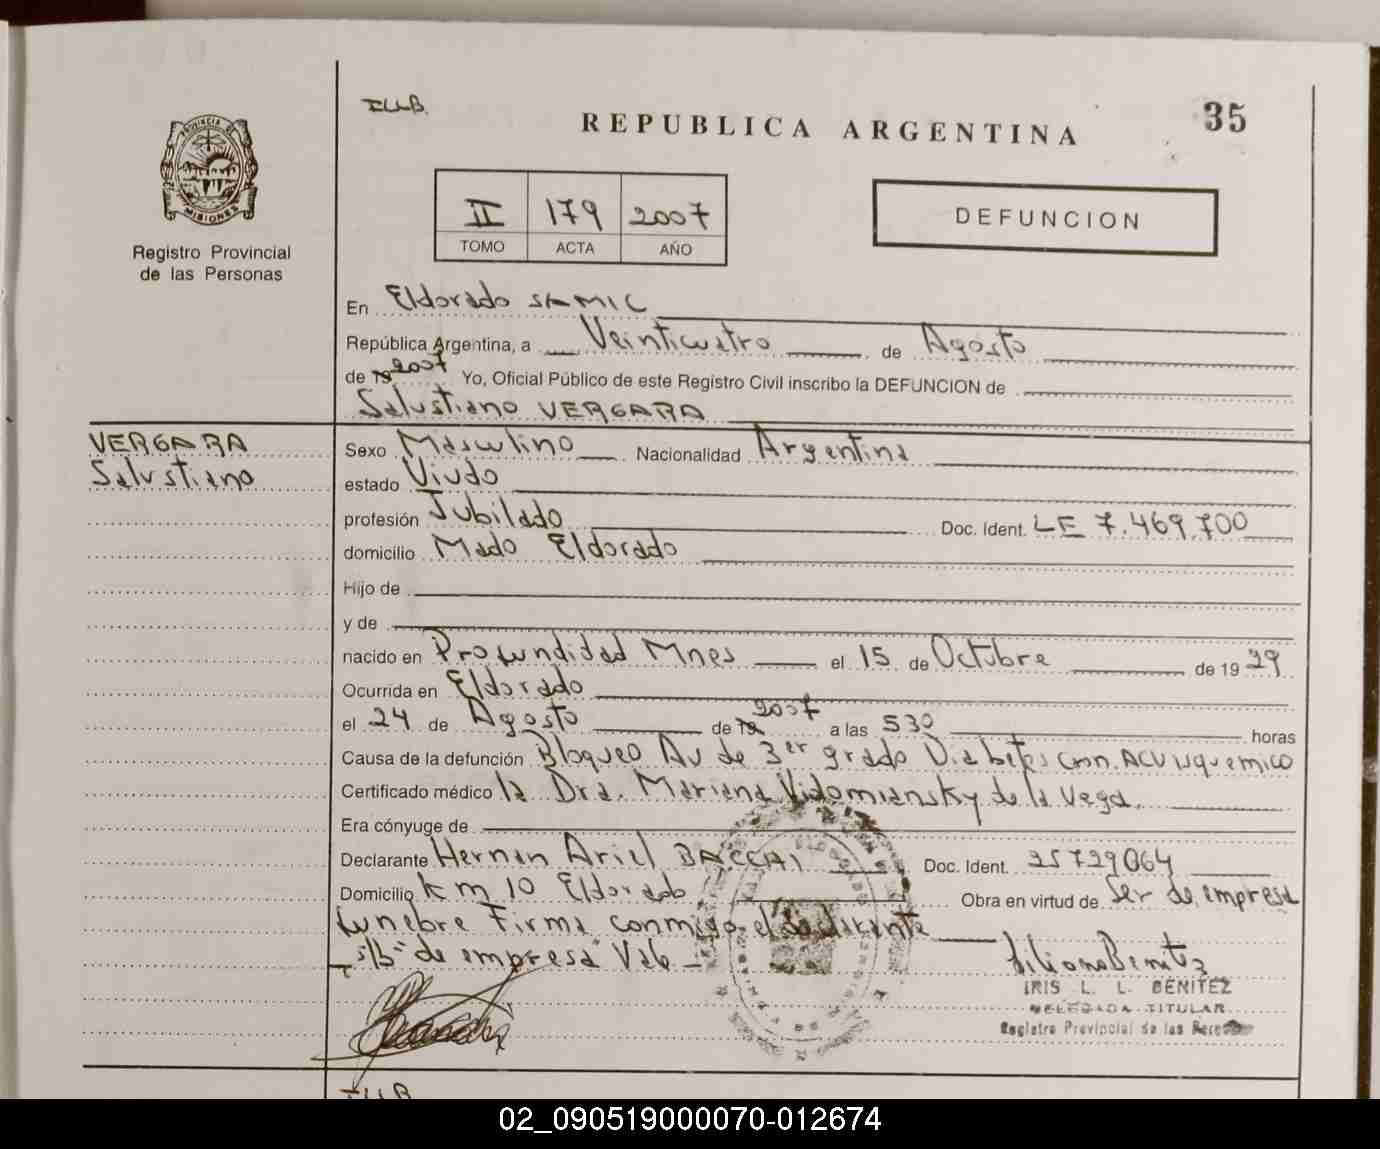 ILLB.
REPUBLICA ARGENTINA
35
PROVINCIA DE
MISIONES
Registro Provincial
de las Personas
II 179 2007
TOMO ACTA AÑO
DEFUNCION
En Eldorado SAMIC
República Argentina, a Veinticuatro de Agosto
de 19 2007 Yo, Oficial Público de este Registro Civil inscribo la DEFUNCION de
Salustiano VERGARA
VERGARA
Salustiano
Sexo Masculino Nacionalidad Argentina
estado Viudo
profesión Jubilado Doc. Ident. LE 7.469.700
domicilio Mado Eldorado
Hijo de
y de
nacido en Profundidad Mnes el 15 de Octubre de 19 29
Ocurrida en Eldorado
el 24 de Agosto de 19 2007 a las 530 horas
Causa de la defunción Bloqueo AV de 3er grado Diabetes ACV
Certificado médico la Dra. Mariana Vidomiansky de la Vega.
Era cónyuge de
Declarante Hernan Ariel BACCAI Doc. Ident. 25729064
Domicilio km 10 Eldorado Obra en virtud de Ser de empresa
funebre Firma conmigo el declarante
s/b "de empresa" Vale
Liliana Benitez
IRIS L. L. BENITEZ
DELEGADA TITULAR
Registro Provincial de las Personas
ILLB
02_090519000070-012674